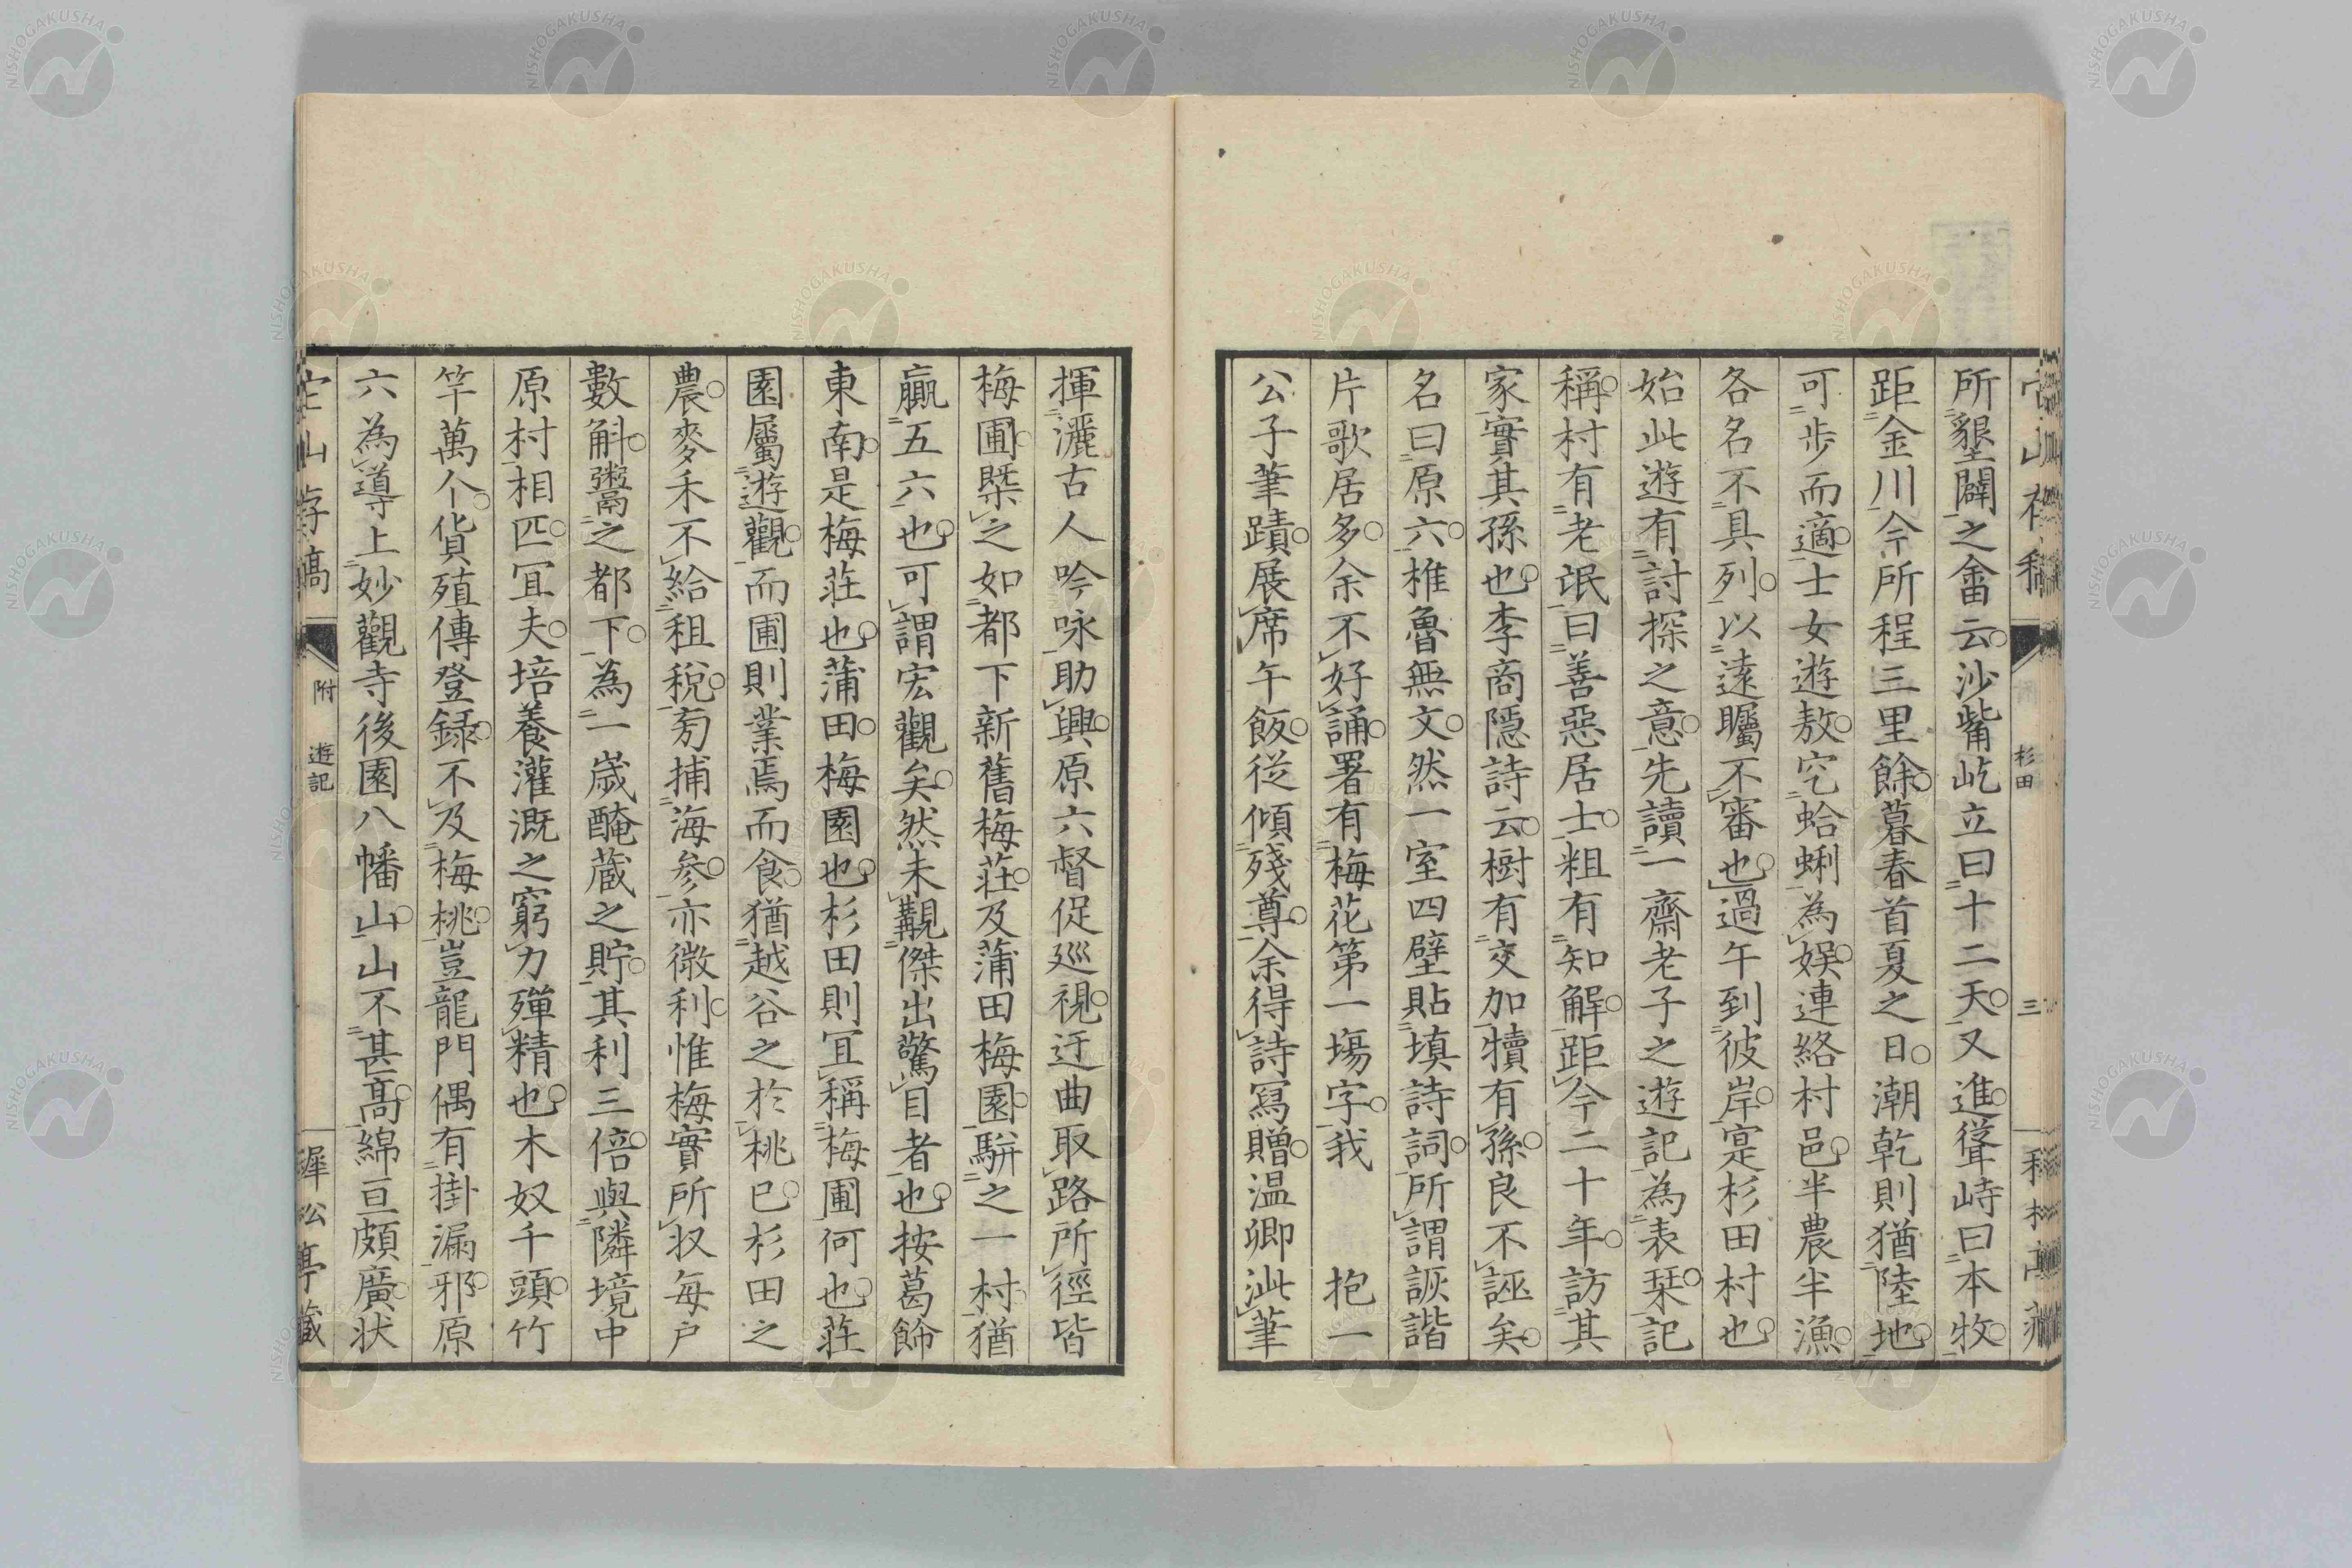 所墾闢之畬云沙觜屹立曰十二天又進聳峙曰本牧
距金川今所程三里餘暮春首夏之日潮乾則猶陸地
可步而適士女遊敖穵蛤蜊為娯連絡村邑半農半漁
各名不具列以遠矚不審也過午到彼岸寔杉田村也
始此遊有討探之意先讀一齋老子之遊記為表栞記
稱村有老氓曰善惡居士粗有知解距今二十年訪其
家實其孫也李商隱詩云樹有交加犢有孫良不誣矣
名曰原六椎魯無文然一室四壁貼填詩詞所謂詼諧
片歌居多余不好誦署有梅花第一場字我 抱一
公子筆蹟展席午飯從傾殘尊余得詩寫贈温卿泚筆
杉田
三
揮灑古人吟咏助興原六督促巡視迂曲取路所徑皆
梅圃槩之如都下新舊梅莊及蒲田梅園駢之一村猶
贏五六也可謂宏觀矣然未覯傑出驚目者也按葛飾
東南是梅莊也蒲田梅園也杉田則冝稱梅圃何也莊
園屬遊觀而圃則業焉而食猶越谷之於桃已杉田之
農麥禾不給租稅芴捕海參亦微利惟梅實所収每户
數斛鬻之都下為一歳醃蔵之貯其利三倍與隣境中
原村相匹冝夫培養灌溉之窮力殫精也木奴千頭竹
竿萬个貨殖傳登録不及梅桃豈龍門偶有掛漏邪原
六為導上妙觀寺後園八幡山山不甚髙綿亘頗廣状
附 遊記
NISHOGAKUSHA